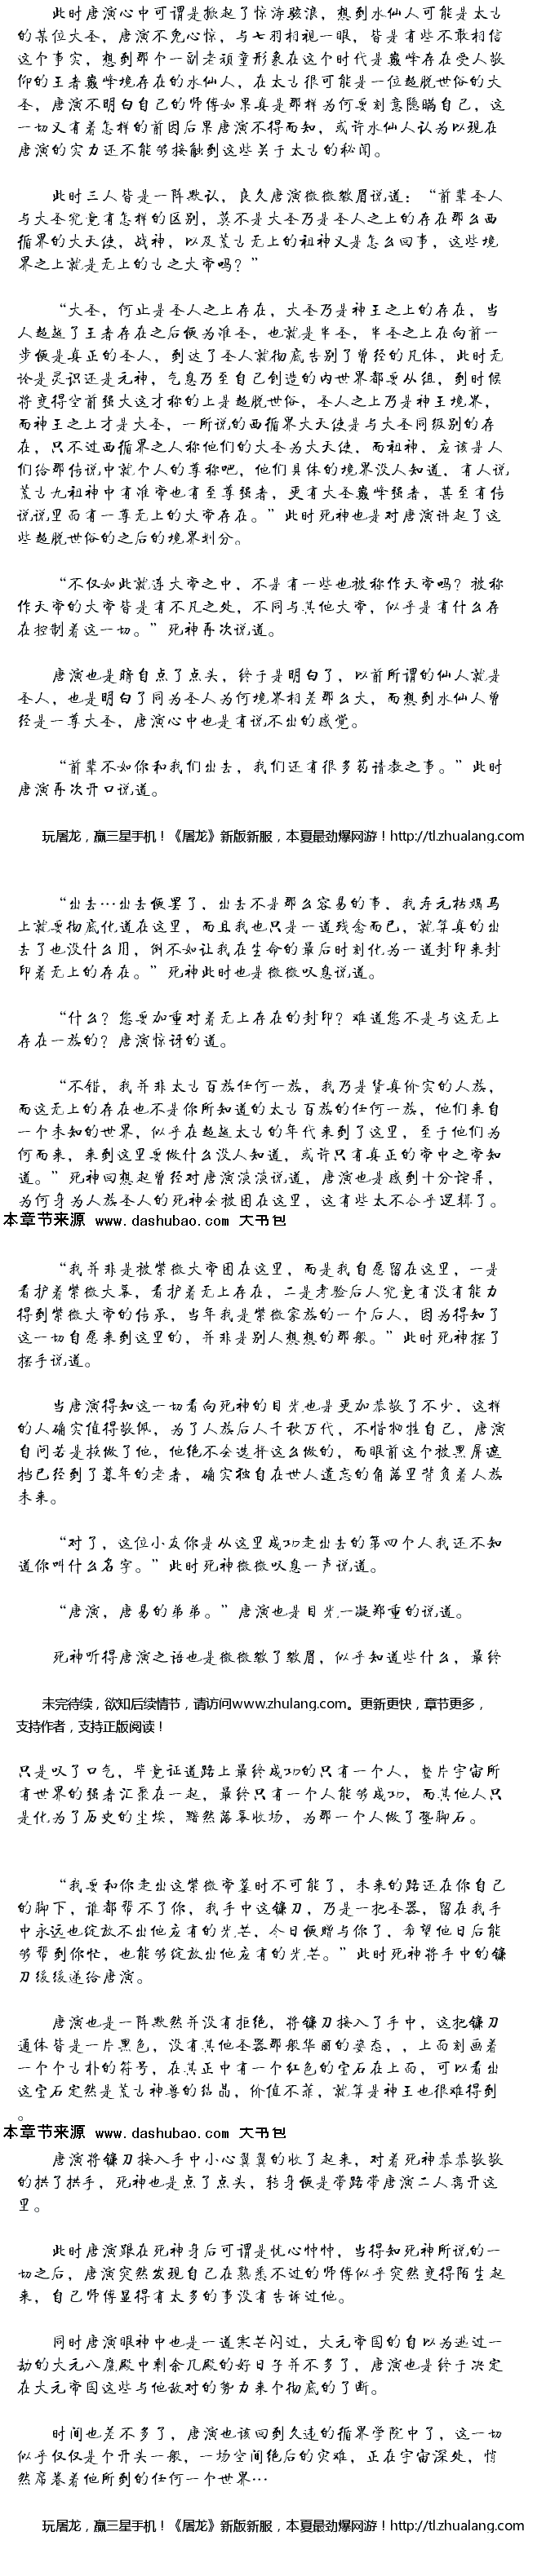 此时唐演心中可谓是掀起了惊涛骇浪，想到水仙人可能是太古
的某位大圣，唐演不免心惊，与七羽相视一眼，皆是有些不敢相信
这个事实，想到那个一副老顽童形象在这个时代是巅峰存在受人敬
仰的王者巅峰境存在的水仙人，在太古很可能是一位超脱世俗的大
圣，唐演不明白自己的师傅如果真是那样为何要刻意隐瞒自己，这
一切又有着怎样的前因后果唐演不得而知，或许水仙人认为以现在
唐演的实力还不能够接触到这些关于太古的秘闻。
此时三人皆是一阵默认，良久唐演微微皱眉说道：“前辈圣人
与大圣究竟有怎样的区别，莫不是大圣乃是圣人之上的存在那么西
循界的大天使，战神，以及荒古无上的祖神又是怎么回事，这些境
界之上就是无上的古之大帝吗？”
“大圣，何止是圣人之上存在，大圣乃是神王之上的存在，当
人超越了王者存在之后便为准圣，也就是半圣，半圣之上在向前一
步便是真正的圣人，到达了圣人就彻底告别了曾经的凡体，此时无
论是灵识还是元神，气息乃至自己创造的内世界都要从组，到时候
将变得空前强大这才称的上是超脱世俗，圣人之上乃是神王境界，
而神王之上才是大圣，一所说的西循界大天使是与大圣同级别的存
在，只不过西循界之人称他们的大圣为大天使，而祖神，应该是人
们给那传说中就个人的尊称吧，他们具体的境界没人知道，有人说
荒古九祖神中有准帝也有至尊强者，更有大圣巅峰强者，甚至有传
说说里面有一尊无上的大帝存在。”此时死神也是对唐演讲起了这
些超脱世俗的之后的境界划分。
“不仅如此就连大帝之中，不是有一些也被称作天帝吗？被称
作天帝的大帝皆是有不凡之处，不同与其他大帝，似乎是有什么存
在控制着这一切。”死神再次说道。
唐演也是暗自点了点头，终于是明白了，以前所谓的仙人就是
圣人，也是明白了同为圣人为何境界相差那么大，而想到水仙人曾
经是一尊大圣，唐演心中也是有说不出的感觉。
“前辈不如你和我们出去，我们还有很多药请教之事。”此时
唐演再次开口说道。
玩屠龙，赢三星手机！《屠龙》新版新服，本夏最劲爆网游！http://tl.zhualang.com
“出去…出去便罢了，出去不是那么容易的事，我寿元枯竭马
上就要彻底化道在这里，而且我也只是一道残念而已，就算真的出
去了也没什么用，例不如让我在生命的最后时刻化为一道封印来封
印着无上的存在。”死神此时也是微微叹息说道。
“什么？您要加重对着无上存在的封印？难道您不是与这无上
存在一族的？唐演惊讶的道。
“不错，我并非太古百族任何一族，我乃是货真价实的人族，
而这无上的存在也不是你所知道的太古百族的任何一族，他们来自
一个未知的世界，似乎在超越太古的年代来到了这里，至于他们为
何而来，来到这里要做什么没人知道，或许只有真正的帝中之帝知
道。”死神回想起曾经对唐演淡淡说道，唐演也是感到十分诧异，
为何身为人族圣人的死神会被困在这里，这有些太不合乎逻辑了。
本章节来源 www.dashubao.com 大书包
“我并非是被紫微大帝困在这里，而是我自愿留在这里，一是
看护着紫微大墓，看护着无上存在，二是考验后人究竟有没有能力
得到紫微大帝的传承，当年我是紫微家族的一个后人，因为得知了
这一切自愿来到这里的，并非是别人想想的那般。”此时死神摆了
摆手说道。
当唐演得知这一切看向死神的目光也是更加恭敬了不少，这样
的人确实值得敬佩，为了人族后人千秋万代，不惜牺牲自己，唐演
自问若是换做了他，他绝不会选择这么做的，而眼前这个被黑屏遮
挡已经到了暮年的老者，确实独自在世人遗忘的角落里背负着人族
未来。
“对了，这位小友你是从这里成功走出去的第四个人我还不知
道你叫什么名字。”此时死神微微叹息一声说道。
“唐演，唐易的弟弟。”唐演也是目光一凝郑重的说道。
死神听得唐演之语也是微微皱了皱眉，似乎知道些什么，最终
未完待续，欲知后续情节，请访问www.zhulang.com。更新更快，章节更多，
支持作者，支持正版阅读！
只是叹了口气，毕竟证道路上最终成功的只有一个人，整片宇宙所
有世界的强者汇聚在一起，最终只有一个人能够成功，而其他人只
是化为了历史的尘埃，黯然落幕收场，为那一个人做了垫脚石。
“我要和你走出这紫微帝墓时不可能了，未来的路还在你自己
的脚下，谁都帮不了你，我手中这镰刀，乃是一把圣器，留在我手
中永远也绽放不出他应有的光芒，今日便赠与你了，希望他日后能
够帮到你忙，也能够绽放出他应有的光芒。”此时死神将手中的镰
刀缓缓递给唐演。
唐演也是一阵默然并没有拒绝，将镰刀接入了手中，这把镰刀
通体皆是一片黑色，没有其他圣器那般华丽的姿态，，上面刻画着
一个个古朴的符号，在其正中有一个红色的宝石在上面，可以看出
这宝石定然是荒古神兽的结晶，价值不菲，就算是神王也很难得到
。
本章节来源 www.dashubao.com 大书包
唐演将镰刀接入手中小心翼翼的收了起来，对着死神恭恭敬敬
的拱了拱手，死神也是点了点头，转身便是带路带唐演二人离开这
里。
此时唐演跟在死神身后可谓是忧心忡忡，当得知死神所说的一
切之后，唐演突然发现自己在熟悉不过的师傅似乎突然变得陌生起
来，自己师傅显得有太多的事没有告诉过他。
同时唐演眼神中也是一道寒芒闪过，大元帝国的自以为逃过一
劫的大元八魔殿中剩余几殿的好日子并不多了，唐演也是终于决定
在大元帝国这些与他敌对的势力来个彻底的了断。
时间也差不多了，唐演也该回到久违的循界学院中了，这一切
似乎仅仅是个开头一般，一场空间绝后的灾难，正在宇宙深处，悄
然席卷着他所到的任何一个世界…
玩屠龙，赢三星手机！《屠龙》新版新服，本夏最劲爆网游！http://tl.zhualang.com